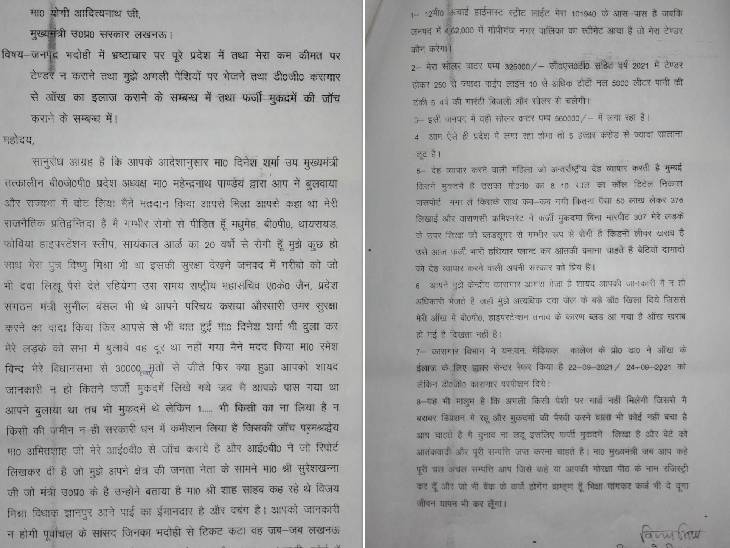 मा0 योगी आदित्यनाथ जी,
मुख्यमंत्री उ0प्र0 सरकार लखनऊ।
विषय–जनपद भदोही में भ्रष्टाचार पर पूरे प्रदेश में तथा मेरा कम कीमत पर
टेण्डर न कराने तथा मुझे अगली पेशियों पर भेजने तथा डी0जी0 कारागार
से आँख का इलाज कराने के सम्बन्ध में तथा फर्जी मुकदमें की जॉच
कराने के सम्बन्ध में।
महोदय,
सानुरोध आग्रह है कि आपके आदेशानुसार मा0 दिनेश शर्मा उप मुख्यमंत्री
तत्कालीन बी0जे0पी0 प्रदेश अध्यक्ष मा0 महेन्द्रनाथ पाण्डेय द्वारा आप ने बुलवाया
और राज्यसभा में वोट लिया मैंने मतदान किया आपसे मिला आपसे कहा था मेरी
राजनैतिक प्रतिद्वन्तिदा है मै गम्भीर रोगो से पीडित हूँ मधुमेह, बी0पी0, थायरायड,
फोविया हाइपरटेंशन स्लीप, सायंकाल आर्ल का 20 वर्षो से रोगी हूँ मुझे कुछ हो
साथ मेरा पुत्र विष्णु मिश्रा भी था इसकी सुरक्षा देखने जनपद में गरीबो को जो
भी दवा लिखू पैसे देते रहियेगा उस समय राष्ट्रीय महासचिव ए0के0 जैन, प्रदेश
संगठन मंत्री सुनील बंसल भी थे आपने परिचय कराया औरसारी उमर सुरक्षा
करने का वादा किया फिर आपसे से भी बात हुई मा0 दिनेश शर्मा भी बुला कर
मेरे लड़के को सभा में बुलाये वह दूर था नही गया मैने मदद किया मा0 रमेश
विन्द मेरे विधानसभा से 30000 मतो से जीते फिर क्या हुआ आपको शायद
जानकारी न हो कितने फर्जी मुकदमें लिखे गये जब मै आपके पास गया था
आपने बुलाया था तब भी मुकदमें थे लेकिन 1..... भी किसी का ना लिया है न
किसी की जमीन न ही सरकारी धन में कमीशन लिया है जिसकी जॉच प्रमश्रद्धेय
मा0 अमितशाह जी मेरे आई0बी0 से जॉच कराये है और आई0बी0 ने जो रिपोर्ट
लिखकर दी है जो मुझे अपने क्षेत्र की जनता नेता के सामने मा0 श्री सुरेशखन्ना
जी जो मंत्री उ0प्र0 के है उन्होने बताया है मा0 श्री शाह साहब कह रहे थे विजय
मिश्रा विधाक ज्ञानपुर आने पाई का ईमानदार है और दबंग है। आपको जानकारी
न होगी पूर्वांचल के सांसद जिनका भदोही से टिकट कटा वह जब–जब लखनऊ
1– 12मी0 ऊचाई हाईमास्ट स्ट्रीट लाईट मेरा 101940 के आस–पास है जबकि
जनपद में 4,62,000 में गोपीगंज नगर पालिका का स्टीमेट आया है तो मेरा टेण्डर
कौन करेगा।
2– मेरा सोलर वाटर पम्प 325000/– जीएस0टी0 सहित वर्ष 2021 में टेण्डर
होकर 250 से ज्यादा पाईप लाईन 10 से अधिक टोटी नल 5000 लीटर पानी की
टंकी 5 वर्ष की गारंटी बिजली और सोलर से चलेगी।
3– इसी जनपद में वही सोलर वाटर पम्प 560000/– में लगा रहा है।
4– आम ऐसे ही प्रदेश में लगा रहा होगा तो 5 हजार करोड़ से ज्यादा सालाना
लूट है।
5– देह व्यापार करने वाली महिला जो अन्तर्राष्ट्रीय देह व्यापार करती है मुम्बई
कितने मुकदमें है उसका मो0नं0 का 8 10 साल का कॉल डिटेल निकाल
पासपोर्ट मंगा ले किसके साथ कब–कब गयी कितना पैसा 50 लाख लेकर 376
लिखाई और वाराणसी कमिशनरेट ने फर्जी मुकदमा बिना मारपीट 307 मेरे लड़के
के उपर लिखा जो ब्लडसूगर से गम्भीर रूप से रोगी है किडनी लीवर खराब है
उसे आज फर्जी भारी हथियार प्लान्ट कर आंतकी बनाना चाहते है बेटियो दामादो
को देह व्यापार करने वाली अपनी सरकार को प्रिय है।
6– आपने मुझे केन्द्रीय कारागार आगरा भेजा है शायद आपकी जानकारी में न हो
अधिकारी भेजते है जहां मुझे अत्यधिक दवा जेल के बड़े डॉ0 खिला दिये जिससे
मेरी आँख में बी0पी0, हाइपरटेंशन तनाव के कारण ब्लड आ गया है आँख खराब
हो गई है दिखता नहीं है।
7– कारागार विभाग ने एन.एन. मेडिकल कालेज के प्रो0 डा0 ने आँख के
ईलाज के लिए हायर सेन्टर रेफर किया है 22–09–2021/ 24–09–2021 को
लेकिन डी0जी0 कारागार परमीशन दिये।
8–यह भी मालूम है कि अगली किसी पेशी पर गार्ड नहीं मिलेगी जिससे मै
बराबर डिप्रेशन में रहू और मुकदमों की पैरवी करने वाला भी कोई नहीं बचा है
आप चाहते है मै चुनाव ना लडू इसलिए फर्जी मुकदमें लिखा है और बेटे को
आतंकवादी और पूरी सम्पत्ति जप्त करना चाहते है। मा0 मुख्यमंत्री जब आप कहे
पूरी चल अचल सम्पत्ति आप जिसे कहे या आपकी गोरक्षा पीठ के नाम रजिस्ट्री
कर दूँ और जो भी बैंक के कर्ज होगेंग ब्राम्हण हूँ भिक्षा मांगकर कर्ज भी दे दूगा
जीवन यापन भी कर लूँगा।
विजय मिश्रा